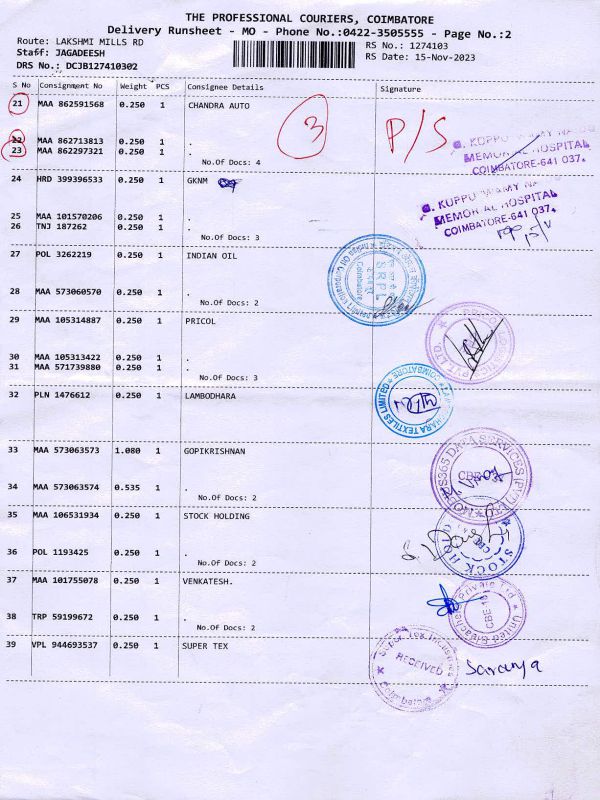 THE PROFESSIONAL COURIERS, COIMBATORE
Delivery Runsheet - MO - Phone No.:0422-3505555 - Page No.:2
Route: LAKSHMI MILLS RD
Staff: JAGADEESH
DRS No.: DCJB127410302
RS No.: 1274103
RS Date: 15-Nov-2023
S No Consignment No Weight PCS Consignee Details Signature
21 MAA 862591568 0.250 1 CHANDRA AUTO
3 P/S
22 MAA 862713813 0.250 1 .
23 MAA 862297321 0.250 1 .
No.Of Docs: 4
HOSPITAL
COIMBATORE-641 037.
24 HRD 399396533 0.250 1 GKNM
HOSPITAL
COIMBATORE-641 037.
25 MAA 101570206 0.250 1 .
26 TNJ 187262 0.250 1 .
No.Of Docs: 3
27 POL 3262219 0.250 1 INDIAN OIL
28 MAA 573060570 0.250 1 .
No.Of Docs: 2
29 MAA 105314887 0.250 1 PRICOL
30 MAA 105313422 0.250 1 .
31 MAA 571739880 0.250 1 .
No.Of Docs: 3
32 PLN 1476612 0.250 1 LAMBODHARA
33 MAA 573063573 1.080 1 GOPIKRISHNAN
34 MAA 573063574 0.535 1 .
No.Of Docs: 2
35 MAA 106531934 0.250 1 STOCK HOLDING
36 POL 1193425 0.250 1 .
No.Of Docs: 2
37 MAA 101755078 0.250 1 VENKATESH.
38 TRP 59199672 0.250 1 .
No.Of Docs: 2
39 VPL 944693537 0.250 1 SUPER TEX
RECEIVED
Saranya